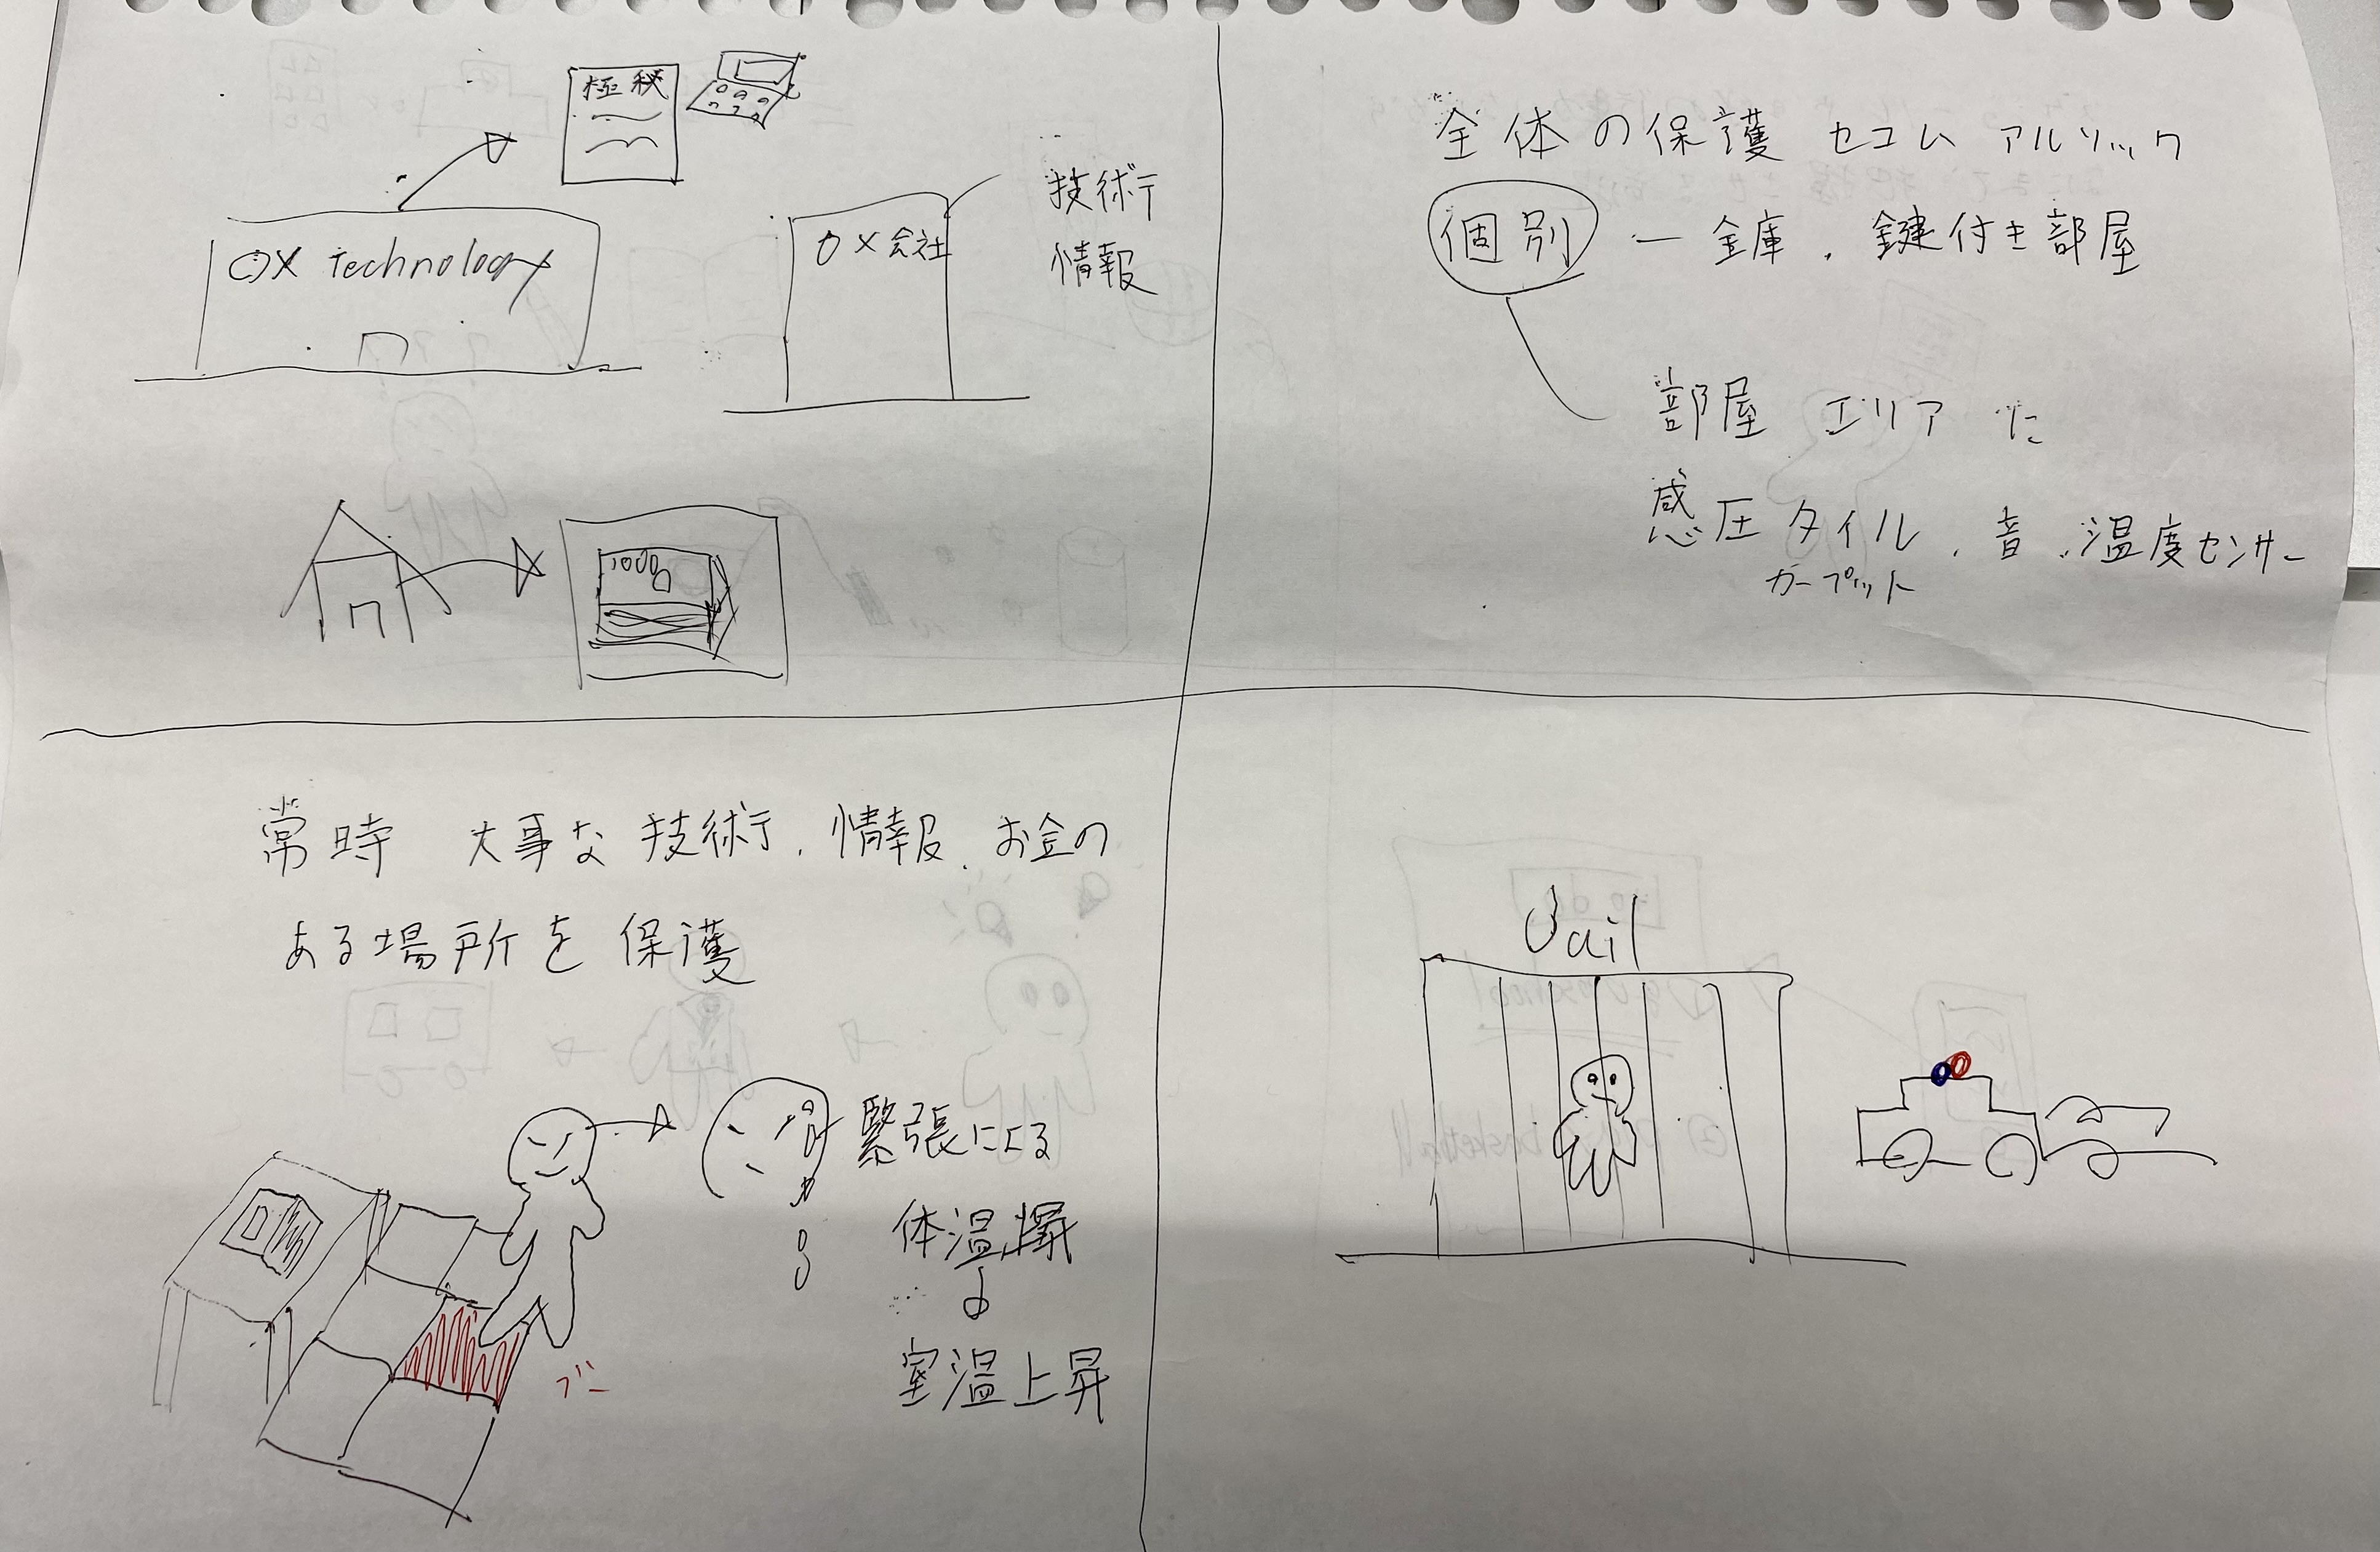 極秘
○× technology
○×会社
技術
情報
10000
全体の保護 セコム アルソック
個別 ー 金庫、鍵付き部屋
部屋 エリア に
感圧タイル、音、温度センサー
カーペット
常時 大事な技術、情報、お金の
ある場所を保護
緊張による
体温
室温上昇
ブー
Jail